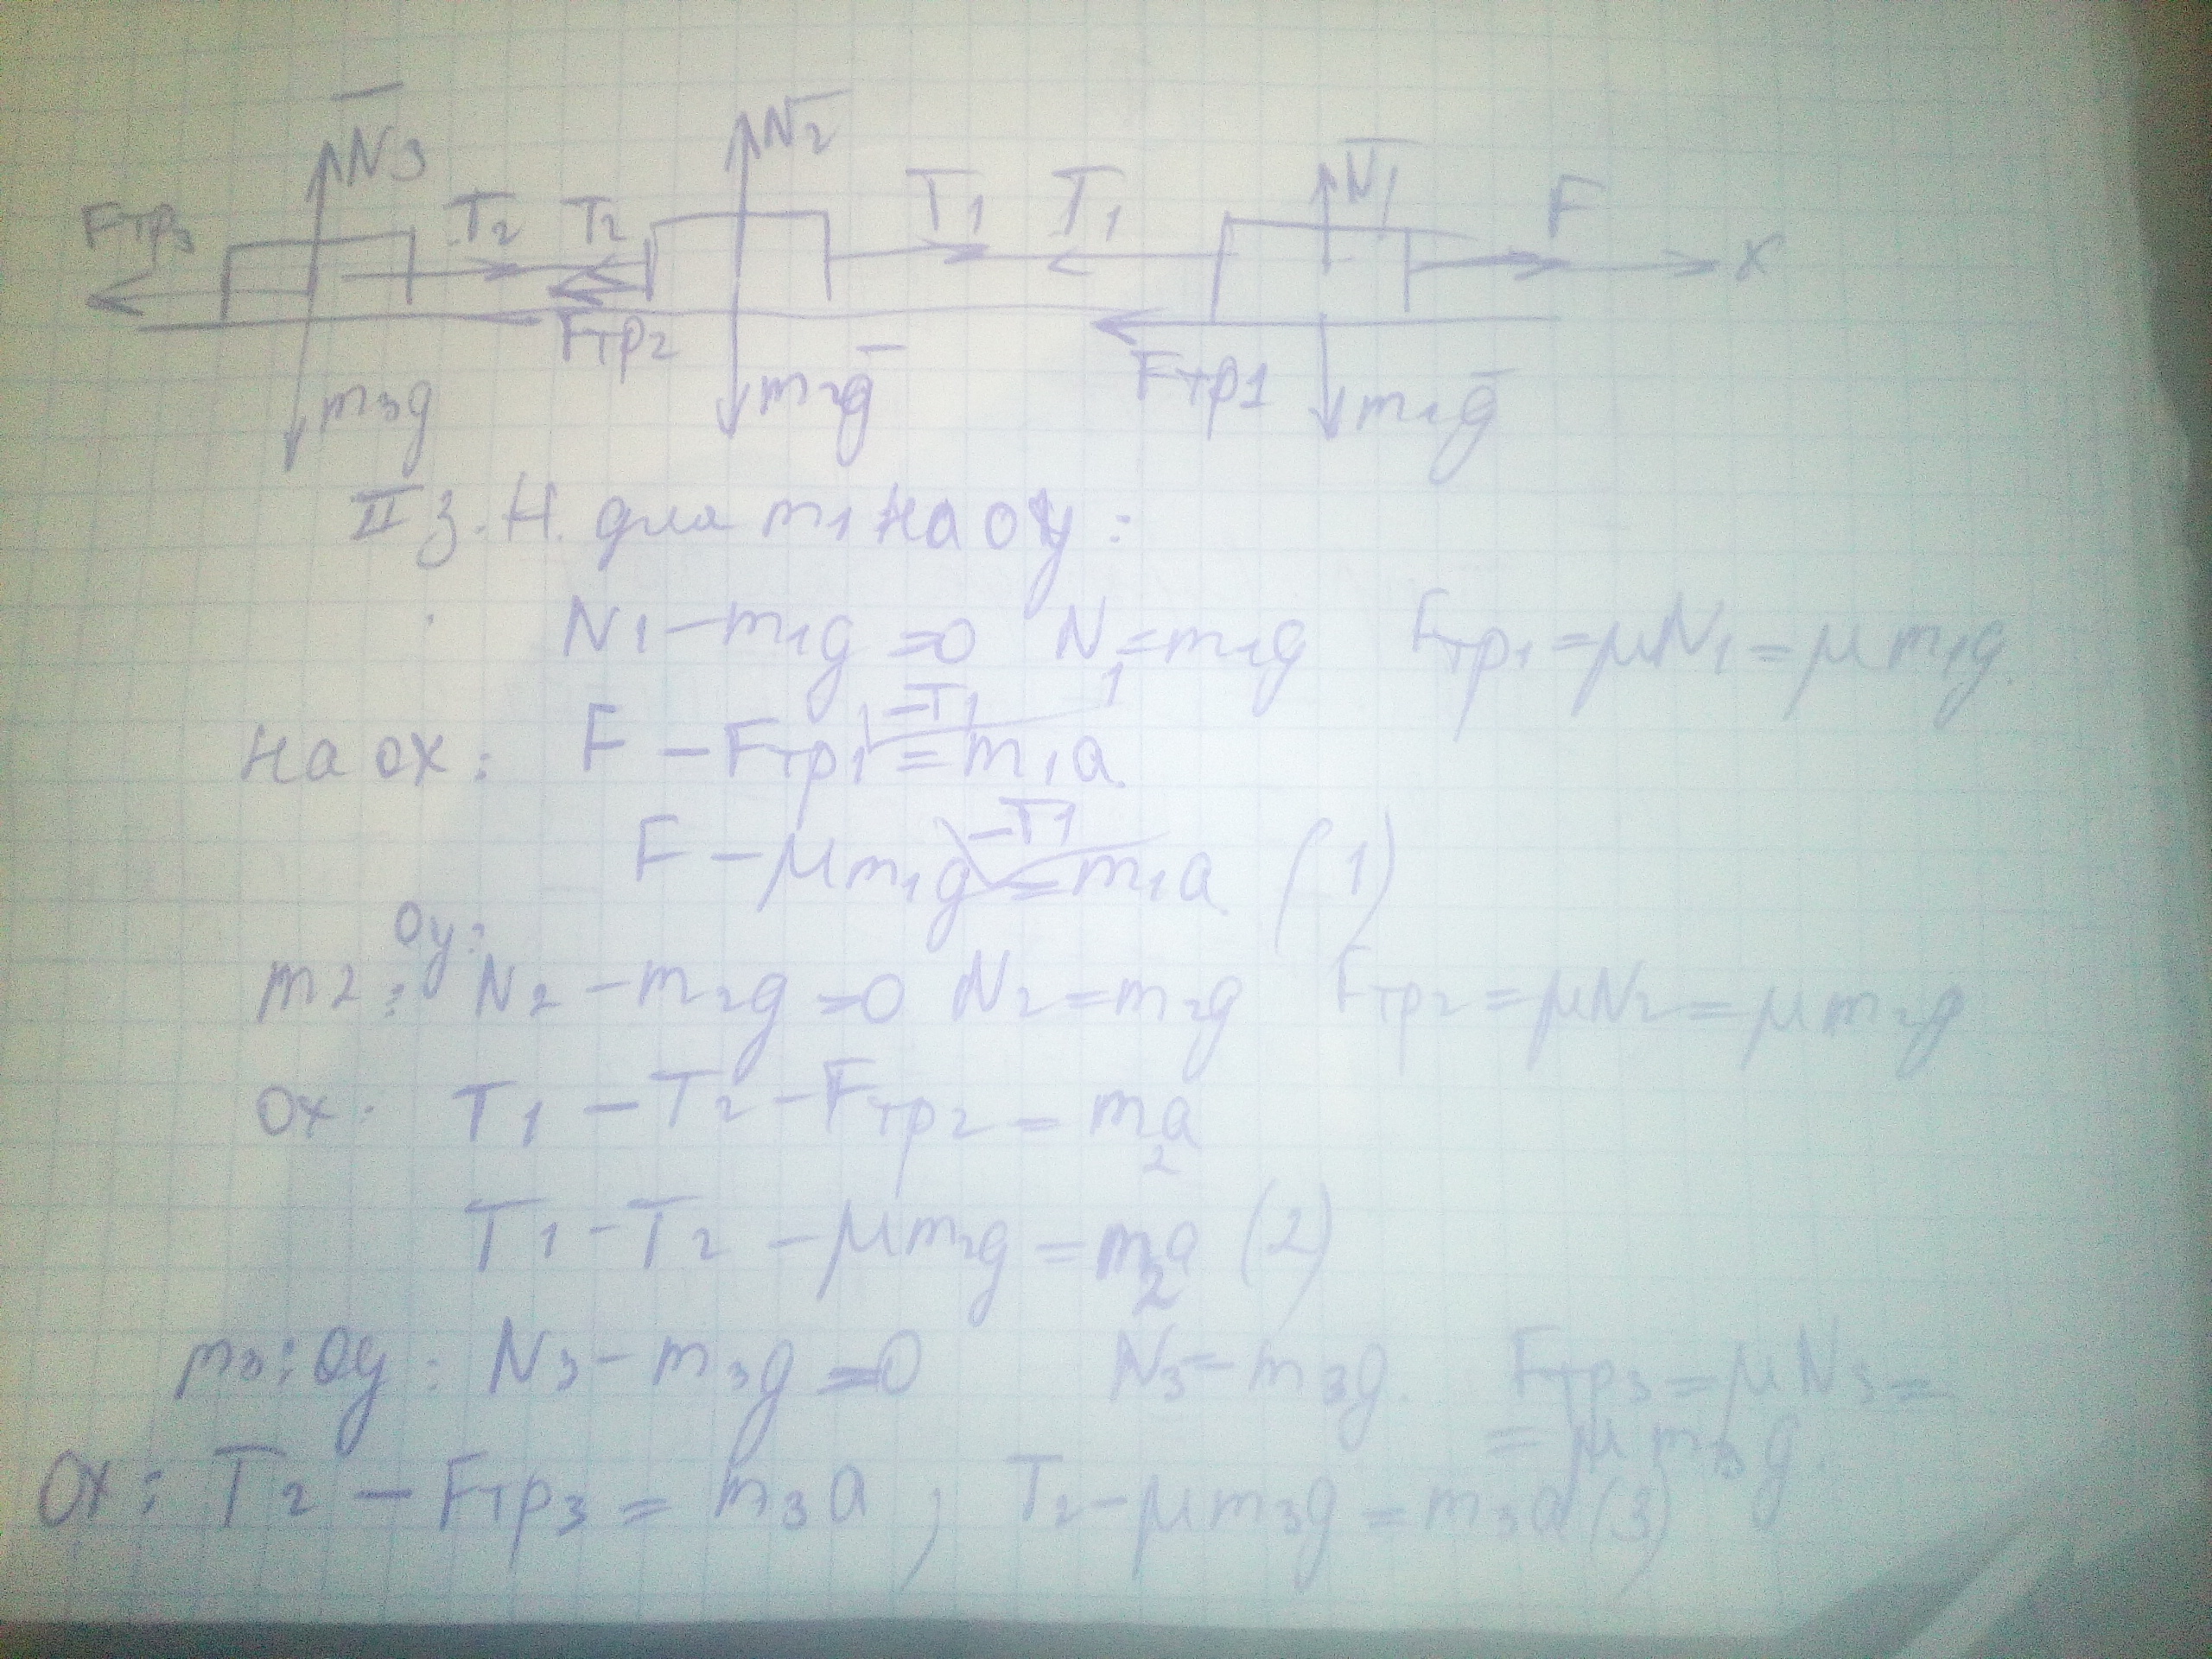 N̅3 N̅2 N̅1
Fтр3 T2 T2 T1 T1 F x
Fтр2 Fтр1
m3g m2g̅ m1g̅
II з. Н. для m1 на оу:
N1 − m1g = 0 N1 = m1g Fтр1 = μN1 = μm1g.
на ох: F − Fтр1 − T1 = m1a.
F − μm1g − T1 = m1a (1)
Оу:
m2: N2 − m2g = 0 N2 = m2g Fтр2 = μN2 = μm2g
Ох: T1 − T2 − Fтр2 = m2a
T1 − T2 − μm2g = m2a (2)
m3: Оу: N3 − m3g = 0 N3 = m3g. Fтр3 = μN3 =
= μm3g.
Ох: T2 − Fтр3 = m3a ; T2 − μm3g = m3a (3)